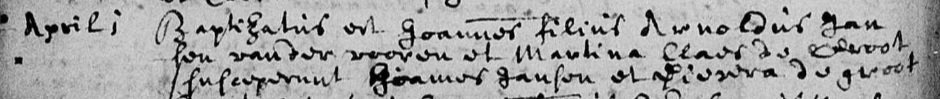 April 1 Baptizatus est Joannes filius Arnoldus Jan
sen vander vooren et Martina Claes de Groot
susceperunt Joannes Jansen et de groot